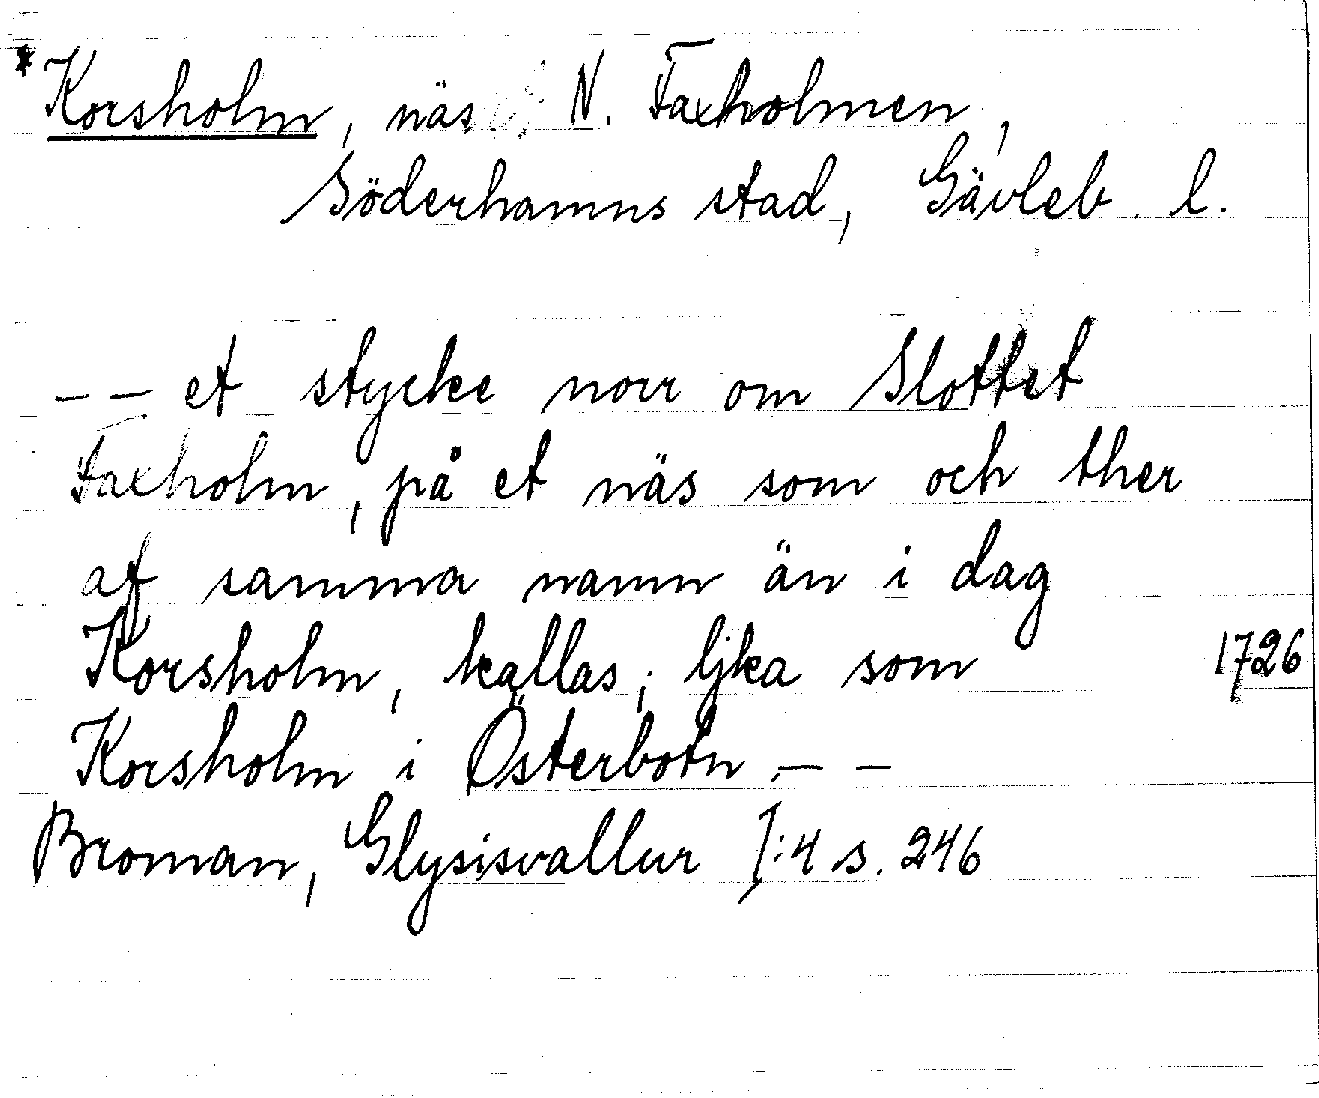 *Korsholm, näs N. Faxholmen,
Söderhamns stad, Gävleb. l.
— — et stycke norr om Slottet
Faxholm, på et näs som och ther
af samma namn än i dag
Korsholm, kallas; ljka som 1726
Korsholm i Österbotn — —
Broman, Glysisvallur I:4 s. 246